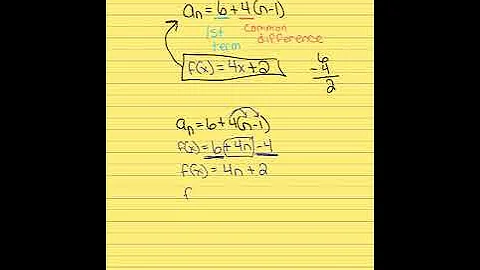 aₙ = 6 + 4(n-1)
1st term
common difference
f(x) = 4x + 2
6
- 4
2
aₙ = 6 + 4(n-1)
f(x) = 6 + 4n - 4
f(x) = 4n + 2
f